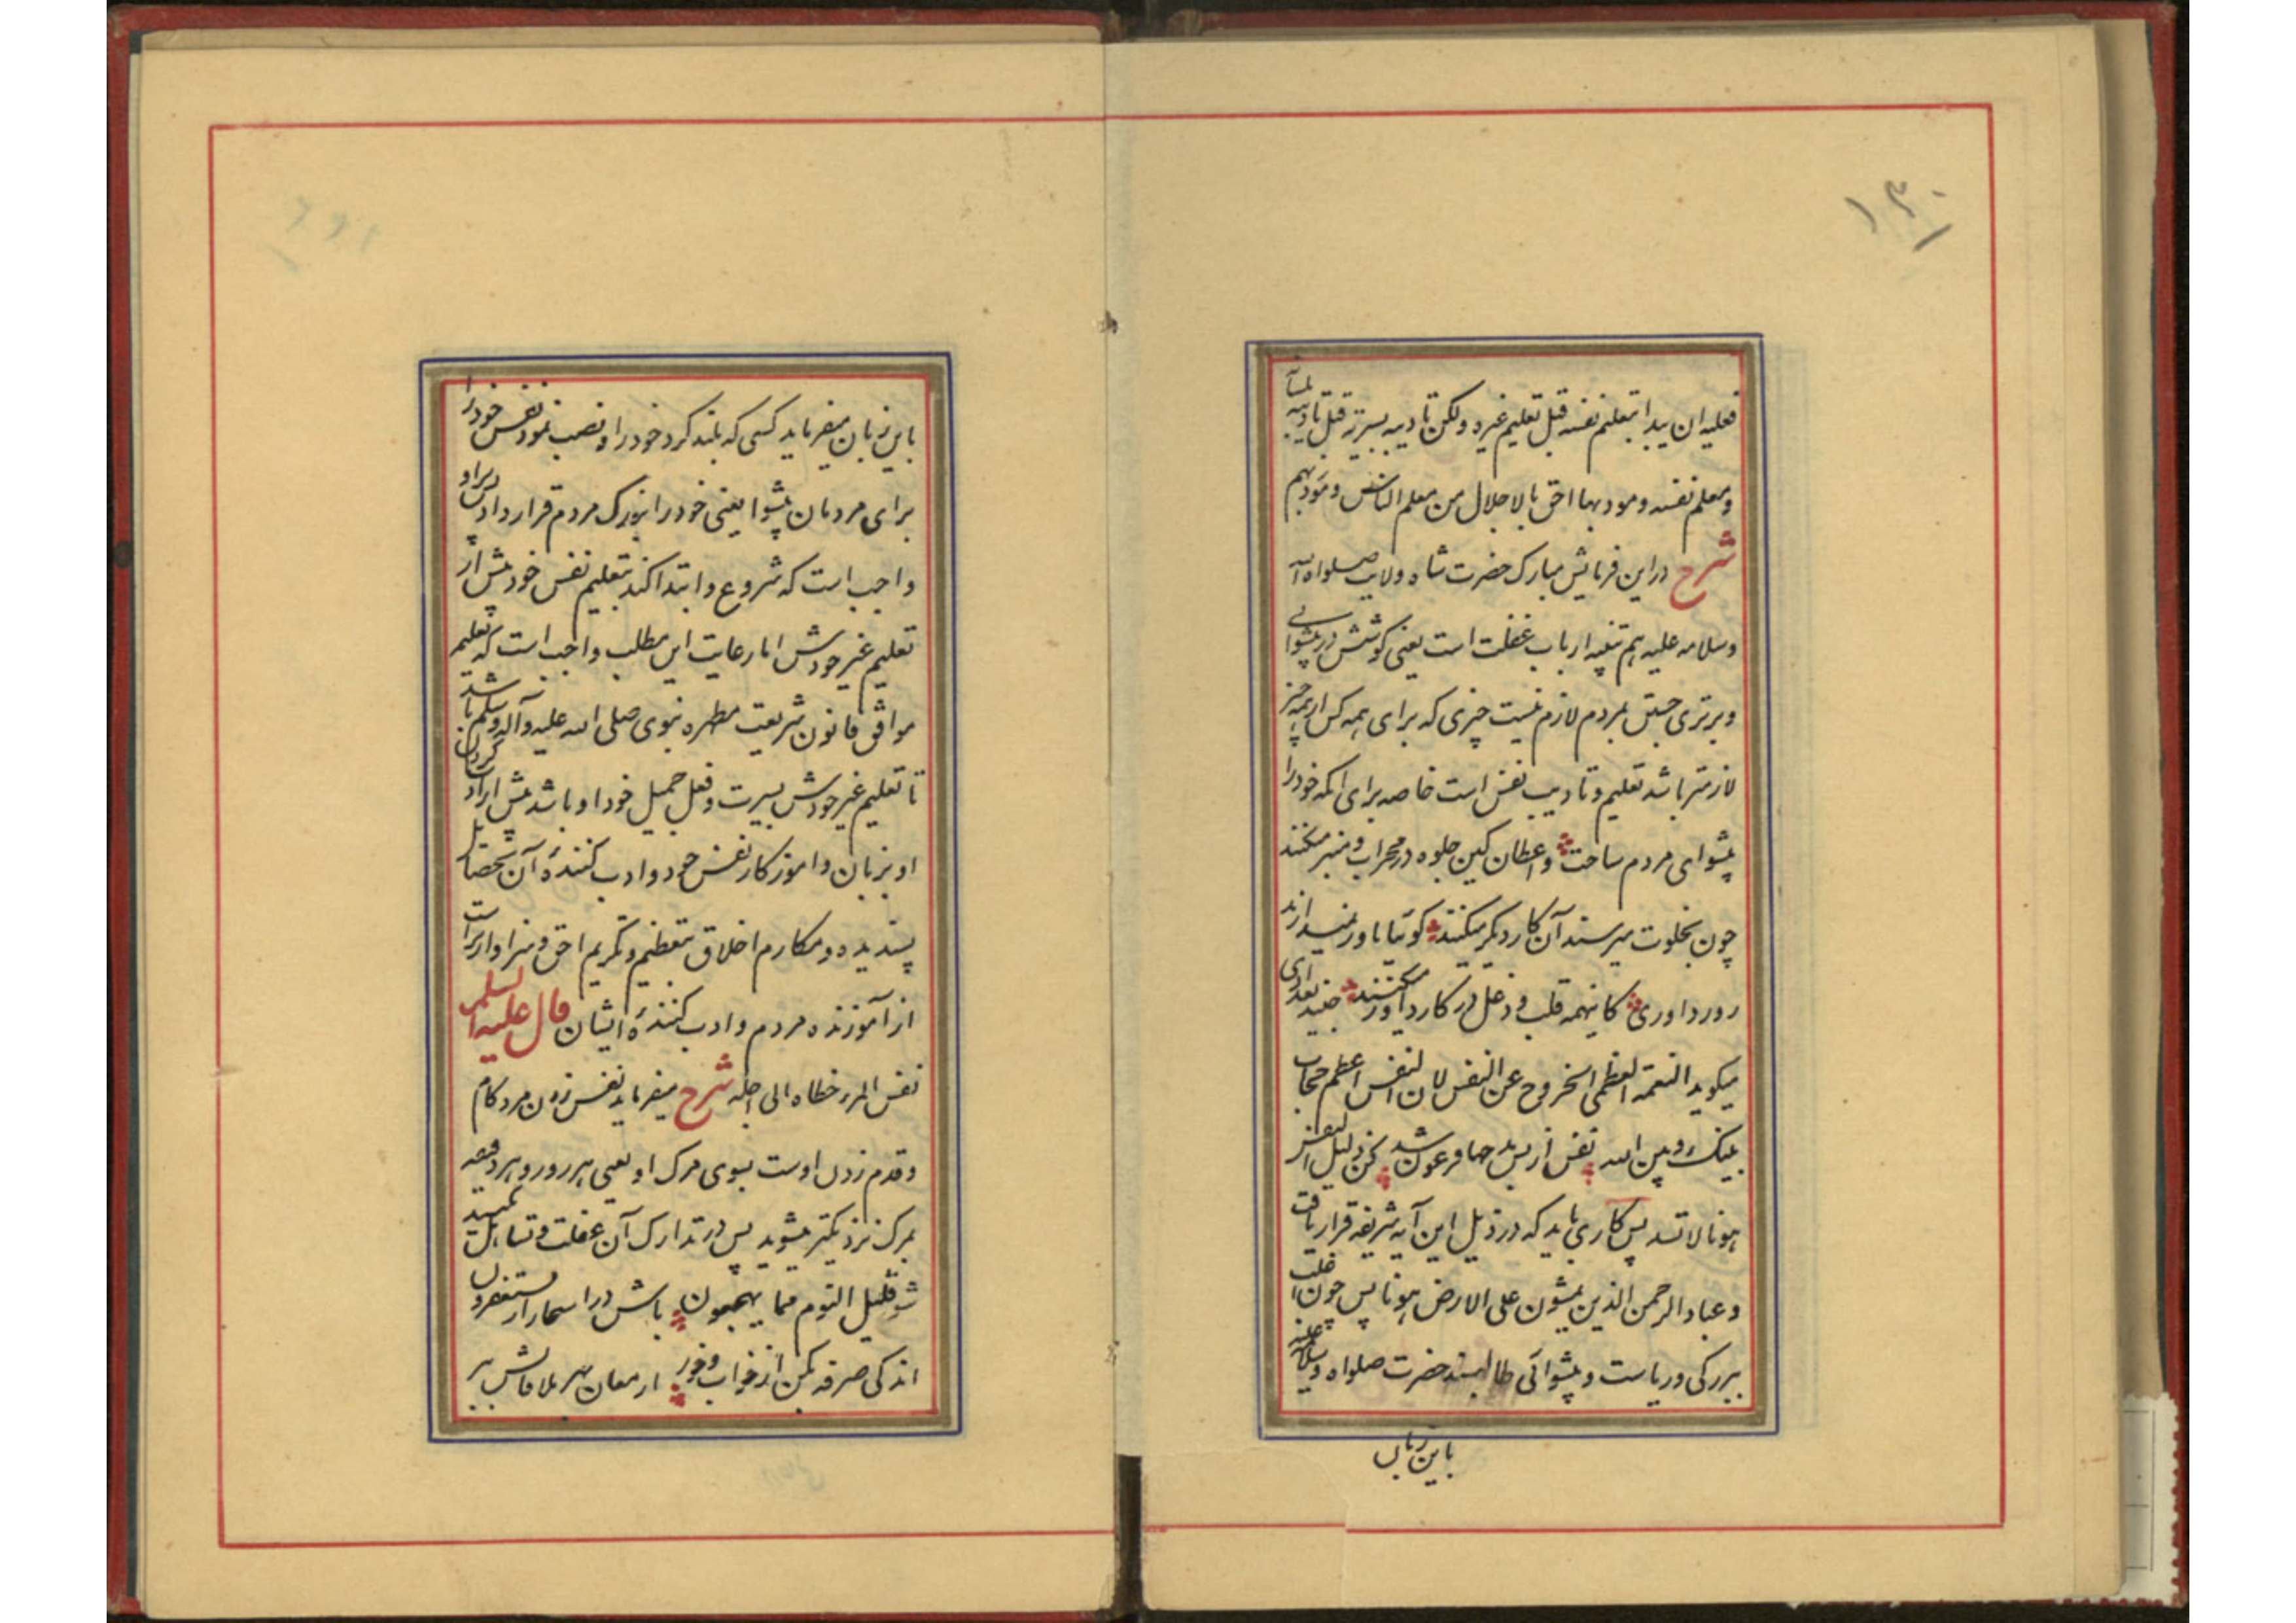 ۱۳۰
فعلیه ان یبدا بتعلیم نفسه قبل تعلیم غیره ولکن تادیبه بسیرته قبل تادیبه بلسانه
و معلم نفسه و مودبها احق بالاجلال من معلم الناس و مودبهم
شرح در این فرمایش مبارک حضرت شاه ولایت صلواه الله
و سلامه علیه هم تنبیه ارباب غفلت است یعنی کوشش در پیشوائی
و برتری جستن بمردم لازم نیست چیزی که برای همه کس از همه چیز
لازمتر باشد تعلیم و تادیب نفس است خاصه برای آنکه خود را
پیشوای مردم ساخت واعظان کین جلوه در محراب و منبر میکنند
چون بخلوت میرسند آن کار دیگر میکنند گوئیا باور نمیدارند
روز داوری کاینهمه قلب و دغل در کار داور میکنند جنید بغدادی
میکوید النعمة العظمی الخروج عن النفس لان النفس اعظم حجاب
بینک و بین الله نفس از بس مدحها فرعون شد کن ذلیل النفس
هونا لا تسد پس کاری باید که در ذیل این آیه شریفه قرار یافت
و عباد الرحمن الذین یمشون علی الارض هونا پس چون اغلب
بزرکی و ریاست و پیشوائی طالبند حضرت صلواه و سلامه علیه
باین زبان
باین زبان میفرماید کسی که بلند کرد خود را و نصب نمود نفس خود را
برای مردمان پیشوا یعنی خود را بزرک مردم قرار داد پس براو
واجب است که شروع و ابتدا کند بتعلیم نفس خود پیش از
تعلیم غیر خودش اما رعایت این مطلب واجب است که تعلیم
موافق قانون شریعت مطهره نبوی صلی الله علیه و آله و سلم باشد
تا تعلیم غیر خودش بسیرت و فعل جمیل خود او باشد پیش از ادب کردن
او بزبان و آموزکار نفس خود و ادب کننده آن بخصایل
پسندیده و مکارم اخلاق بتعظیم و تکریم احق و سزاوارتر است
از آموزنده مردم و ادب کننده ایشان قال علیه السلم
نفس المرء خطاه الی اجله شرح میفرماید نفس زدن مرد کام
و قدم زدن اوست بسوی مرک او یعنی هر روز و هر دقیقه
بمرک نزدیکتر میشوید پس در تدارک آن غفلت و تساهل نکنید
شو قلیل النوم مما یهجعون باش در اسحار از یستغفرون
اندکی صرفه بکن از خواب و خور ارمغان بهر ملاقاتش ببر